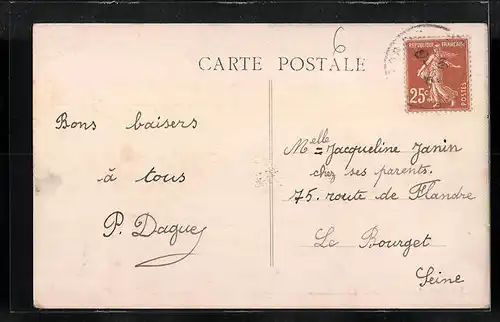 6
CARTE POSTALE
REPUBLIQUE FRANÇAISE
25c
POSTES
Bons baisers
à tous
P. Dague
Melle Jacqueline Janin
chez ses parents.
75. route de Flandre
Le Bourget
Seine